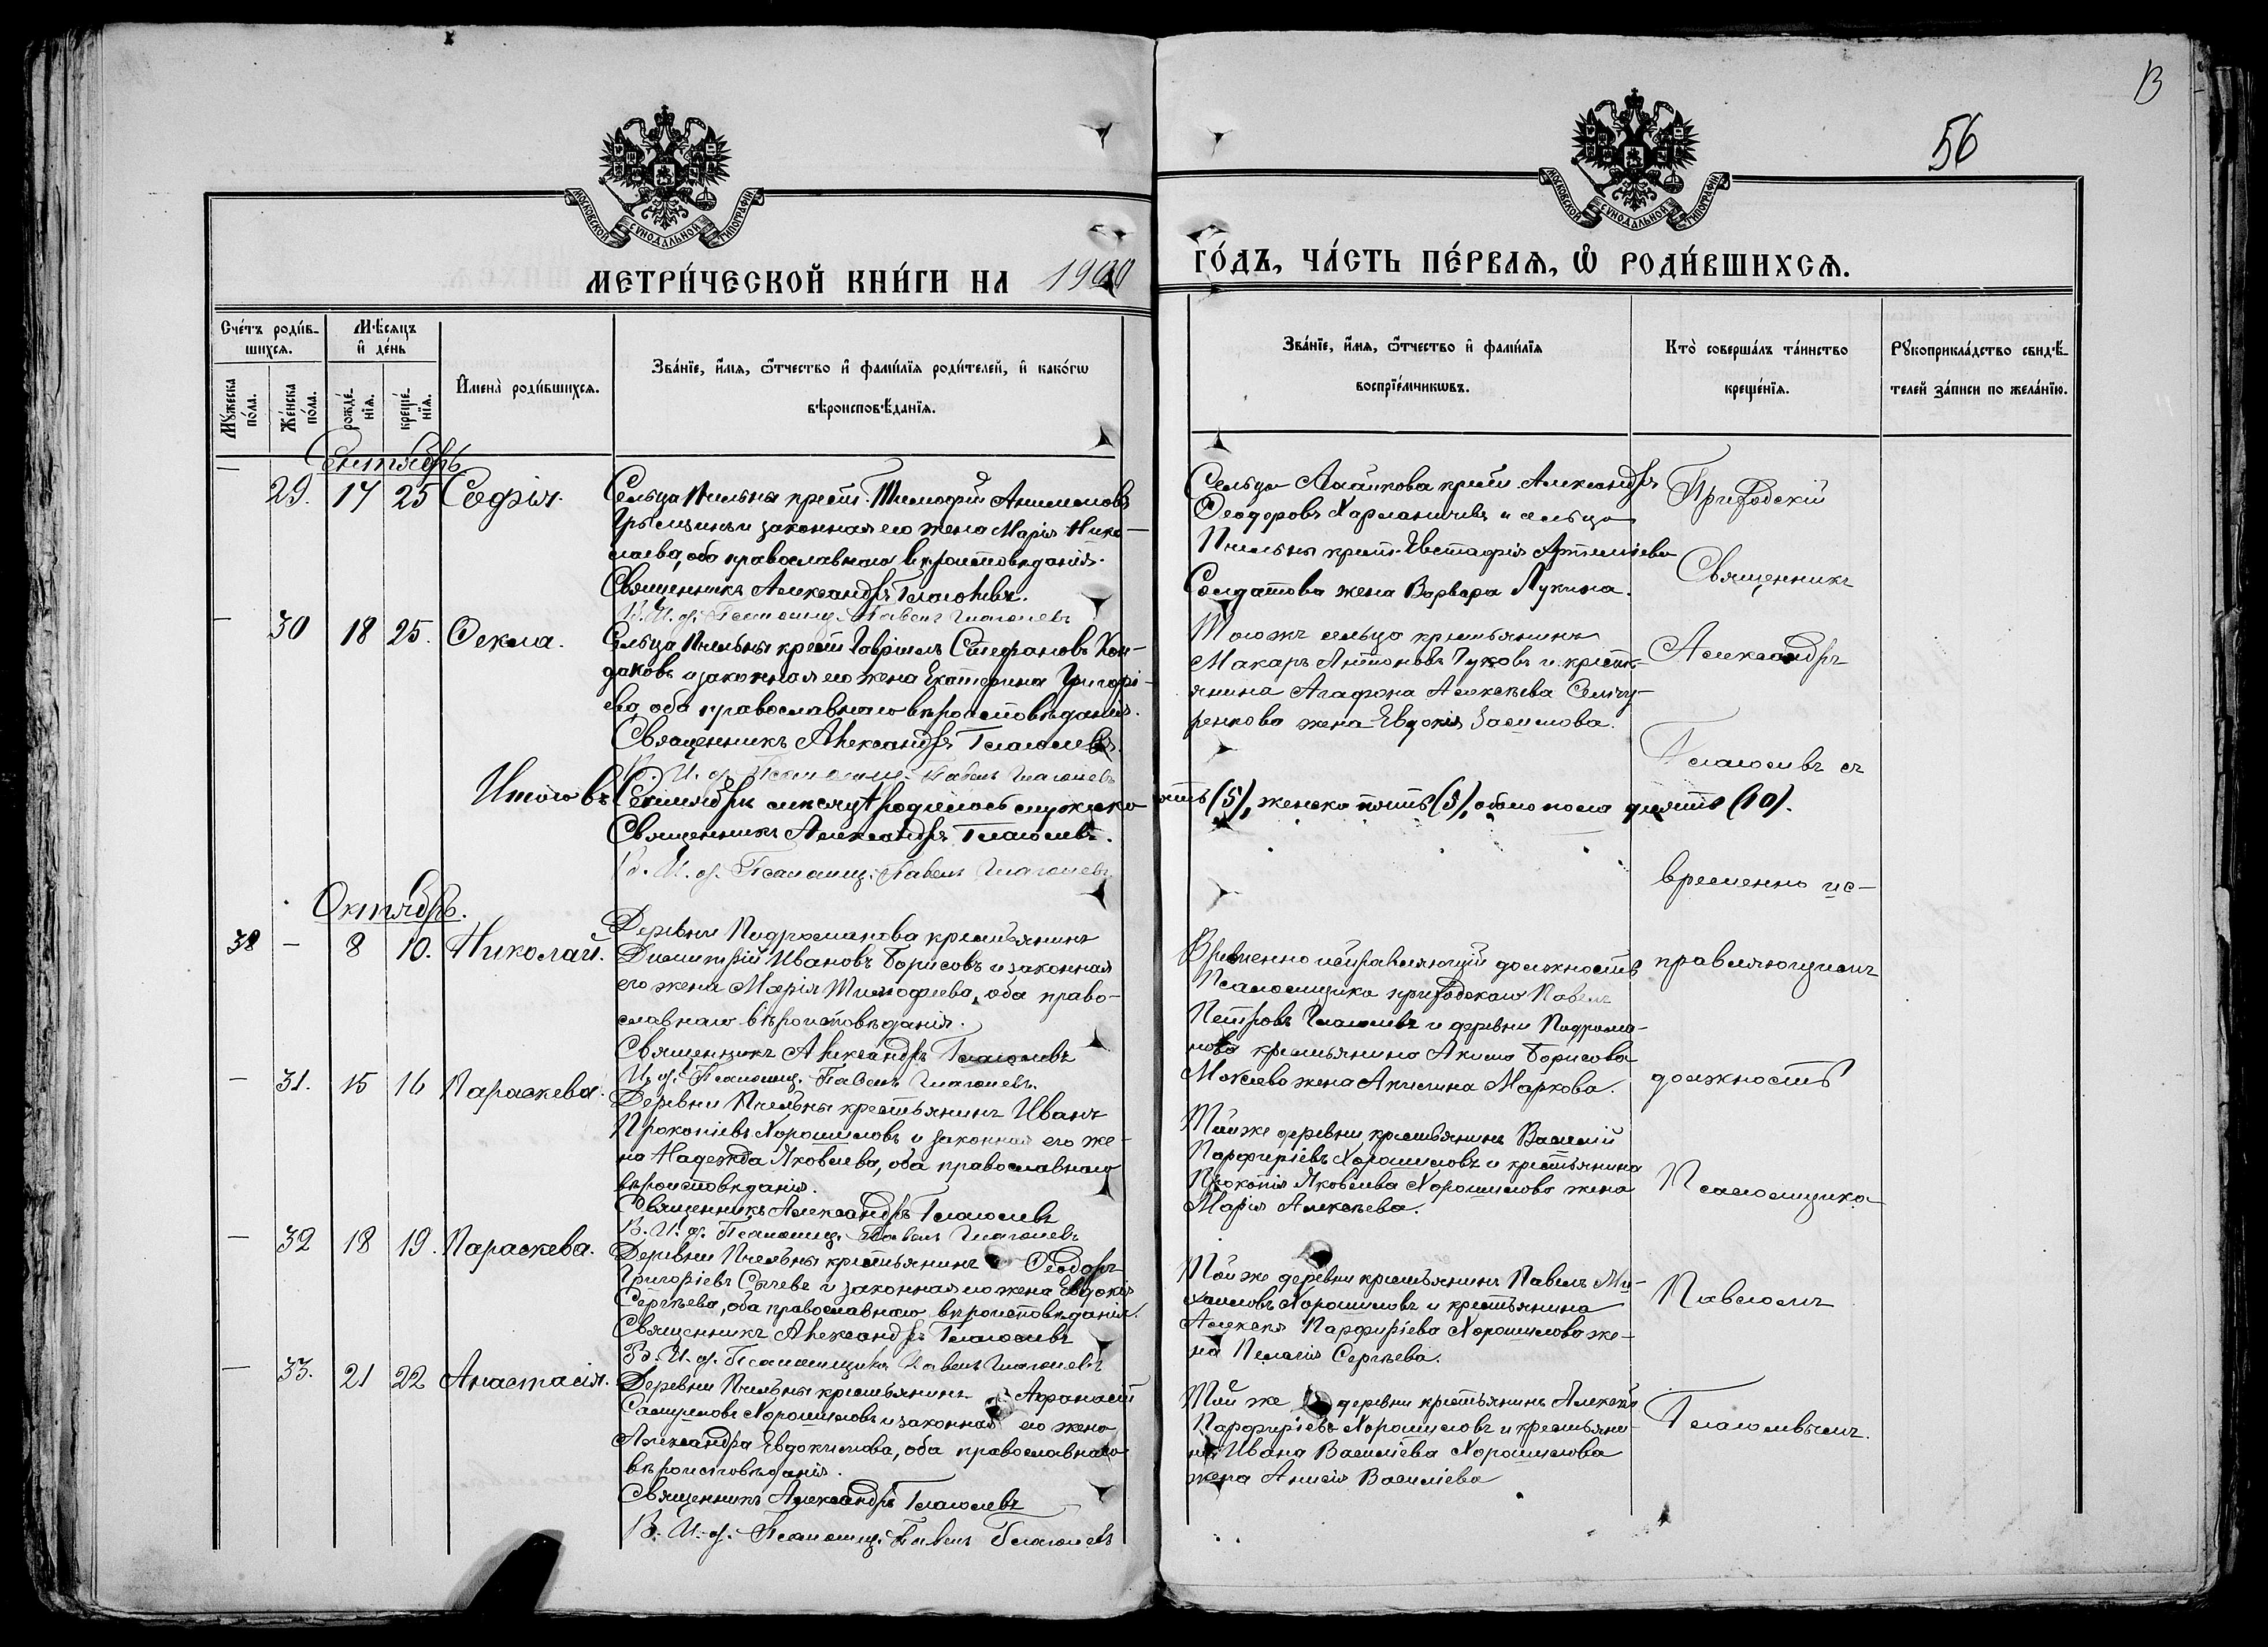 В
56
МОСКОВСКОЙ СѴНОДАЛЬНОЙ ТИПОГРАФІИ
МОСКОВСКОЙ СѴНОДАЛЬНОЙ ТИПОГРАФІИ
МЕТРИ́ЧЕСКОЙ КНИ́ГИ НА 1900
ГО́ДЪ, ЧА́СТЬ ПЕ́РВАѦ, Ѿ РОДИ́ВШИХСѦ.
Сче́тъ роди́в-
шихсѧ.
Мꙋ́жеска по́ла.
Же́нска по́ла.
Мѣ́сѧцъ
и де́нь
рожде́-нїѧ.
креще́-нїѧ.
Имена̀ роди́вшихсѧ.
Зва́нїе, и́мѧ, ѻ́тчество и фами́лїѧ роди́телей, и како́гѡ
вѣроисповѣ́данїѧ.
Зва́нїе, и́мѧ, ѻ́тчество и фами́лїѧ
воспрїе́мникѡвъ.
Кто̀ соверша́лъ та́инство
креще́нїѧ.
Рꙋкоприкла́дство свидѣ́-
телей за́писи по жела́нїю.
Сентябрь
— 29. 17 25 Софія.
Сельца Пчельны крест. Тимофей
и законная его жена Марія Нико-
лаева, оба православнаго вѣроисповѣданія.
Священникъ Александръ Глаголевъ.
В. И. д. Псаломщ. Павелъ Глаголевъ
Сельца крест. Александръ
Ѳеодоровъ и сельца
Пчельны крест. Евстафія Артеміева
Солдатова жена Варвара Лукина.
— 30 18 25. Ѳекла.
Сельца Пчельны крест. Гавріилъ Стефановъ Кон-
даковъ и законная его жена Екатерина Григорі-
ева, оба православнаго вѣроисповѣданія.
Священникъ Александръ Глаголевъ.
В. И. д. Псаломщ. Павелъ Глаголевъ
Тогожъ сельца крестьянинъ
Макаръ Антоновъ и крестья-
янина Агафона Алексѣева
жена Евдокія
Итого въ Сентябрѣ мѣсяцѣ родилось мужска
пять (5), женска пять (5), обоего пола десять (10).
Священникъ Александръ Глаголевъ.
В. И. д. Псаломщ. Павелъ Глаголевъ
Октябрь.
38 — 8 10. Николай.
Деревни Подросманова крестьянинъ
Димитрій Ивановъ Борисовъ и законная
его жена Марія Тимофеева, оба право-
славнаго вѣроисповѣданія.
Священникъ Александръ Глаголевъ
И. д. Псаломщ. Павелъ Глаголевъ.
Временно исправляющій должность
Псаломщика приходскаго Павелъ
Петровъ Глаголевъ и деревни
крестьянина Акима Борисова
жена Акилина Маркова.
— 31. 15 16 Параскева.
Деревни Пчельны крестьянинъ Иванъ
Прокопіевъ Хорошиловъ и законная его же-
на Надежда Яковлева, оба православнаго
вѣроисповѣданія.
Священникъ Александръ Глаголевъ
В. И. д. Псаломщ. Павелъ Глаголевъ
Той же деревни крестьянинъ Василій
Парфиріевъ Хорошиловъ и крестьянина
Прокопія Яковлева Хорошилова жена
Марія Алексѣева.
— 32 18 19. Параскева.
Деревни Пчельны крестьянинъ Ѳеодоръ
Григоріевъ Сычевъ и законная его жена Евдокія
Сергѣева, оба православнаго вѣроисповѣданія.
Священникъ Александръ Глаголевъ
В. И. д. Псаломщикъ Павелъ Глаголевъ
Той же деревни крестьянинъ Павелъ Ми-
хаиловъ Хорошиловъ и крестьянина
Алексѣя Парфиріева Хорошилова же-
на Пелагія Сергѣева.
— 33. 21 22 Анастасія.
Деревни Пчельны крестьянинъ Аѳанасій
Самуиловъ Хорошиловъ и законная его жена
Александра Евдокимова, оба православнаго
вѣроисповѣданія.
Священникъ Александръ Глаголевъ
В. И. д. Псаломщ. Павелъ Глаголевъ
Той же деревни крестьянинъ Алексѣй
Парфиріевъ Хорошиловъ и крестьяни-
на Ивана Василіева Хорошилова
жена Анисія Василіева
Приходскій
Священникъ
Александръ
Глаголевъ съ
временно ис-
правляющимъ
должность
Псаломщика
Павломъ
Глаголевымъ.